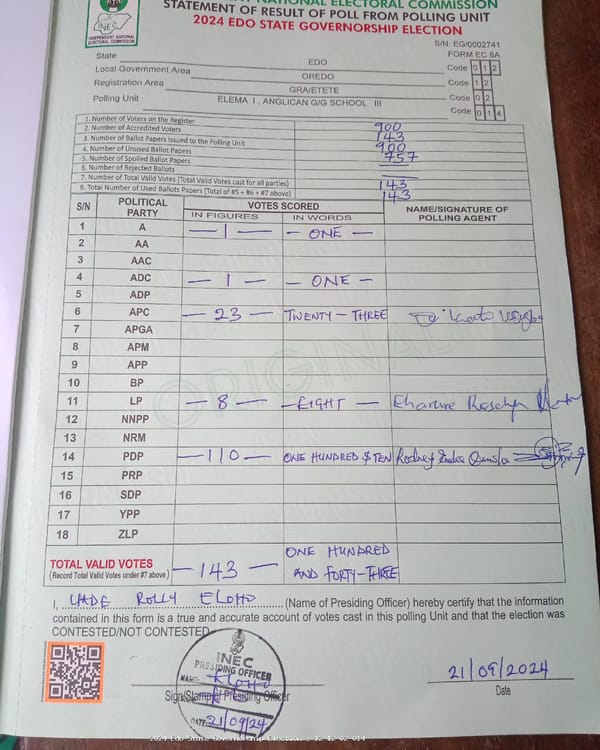 INDEPENDENT NATIONAL ELECTORAL COMMISSION
INEC
INDEPENDENT NATIONAL
ELECTORAL COMMISSION
STATEMENT OF RESULT OF POLL FROM POLLING UNIT
2024 EDO STATE GOVERNORSHIP ELECTION
S/N: EG/0002741
FORM EC 8A
State EDO Code 0 1 2
Local Government Area OREDO Code 1 2
Registration Area GRA/ETETE Code 0 2
Polling Unit ELEMA I , ANGLICAN G/G SCHOOL III Code 0 1 4
1. Number of Voters on the Register 900
2. Number of Accredited Voters 143
3. Number of Ballot Papers Issued to the Polling Unit 900
4. Number of Unused Ballot Papers 757
5. Number of Spoiled Ballot Papers —
6. Number of Rejected Ballots —
7. Number of Total Valid Votes (Total Valid Votes cast for all parties) 143
8. Total Number of Used Ballots Papers (Total of #5 + #6 + #7 above) 143
S/N POLITICAL PARTY VOTES SCORED NAME/SIGNATURE OF POLLING AGENT
IN FIGURES IN WORDS
1 A — 1 — – ONE —
2 AA
3 AAC
4 ADC — 1 — – ONE –
5 ADP
6 APC – 23 – TWENTY - THREE
7 APGA
8 APM
9 APP
10 BP
11 LP – 8 – – EIGHT –
12 NNPP
13 NRM
14 PDP – 110 – ONE HUNDRED & TEN Rodney
15 PRP
16 SDP
17 YPP
18 ZLP
ORIGINAL
TOTAL VALID VOTES – 143 – ONE HUNDRED
(Record Total Valid Votes under #7 above) AND FORTY-THREE
I, UADE ROLLY ELOHO (Name of Presiding Officer) hereby certify that the information
contained in this form is a true and accurate account of votes cast in this polling Unit and that the election was
CONTESTED/NOT CONTESTED
INEC
PRESIDING OFFICER
NAME: ELOHO
Sign/Stamp of Presiding Officer
DATE: 21/09/24
21/09/2024
Date
2024 Edo State Governorship Election : 12-12-02-014